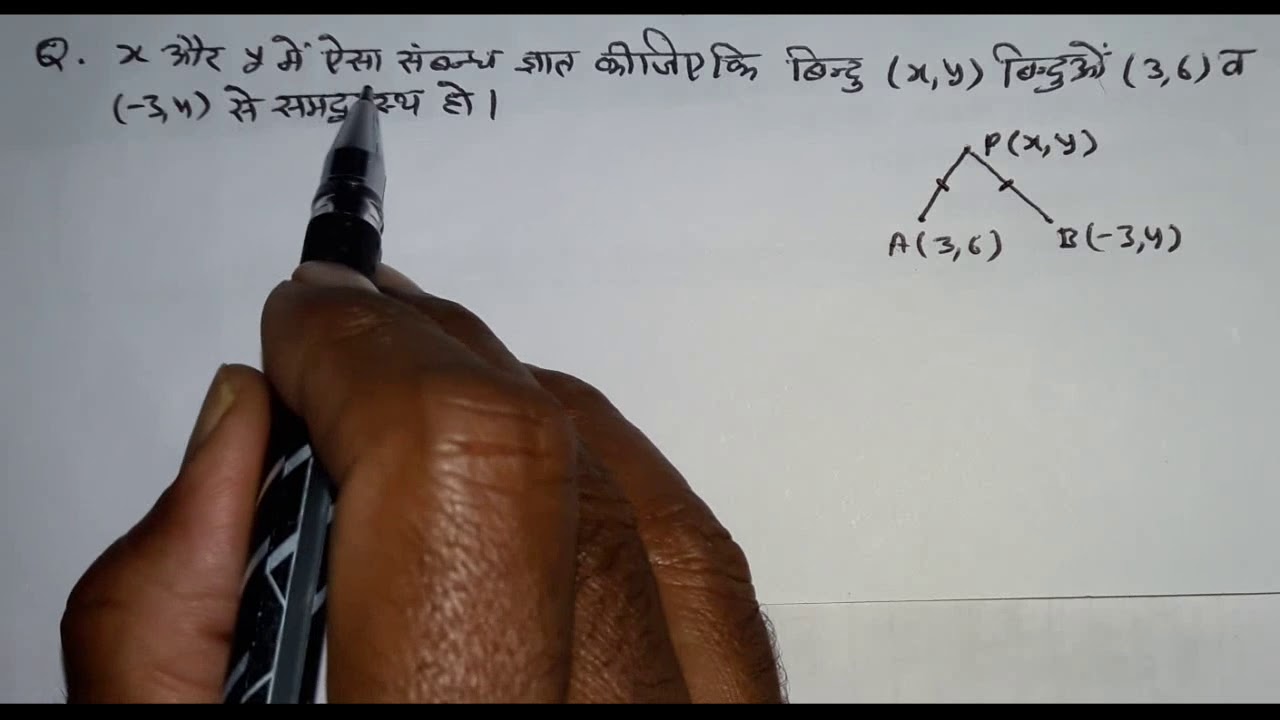 Q. x और y में ऐसा संबन्ध ज्ञात कीजिए कि बिन्दु (x,y) बिन्दुओं (3,6) व
(-3,4) से हो।
P(x,y)
A(3,6)
B(-3,4)